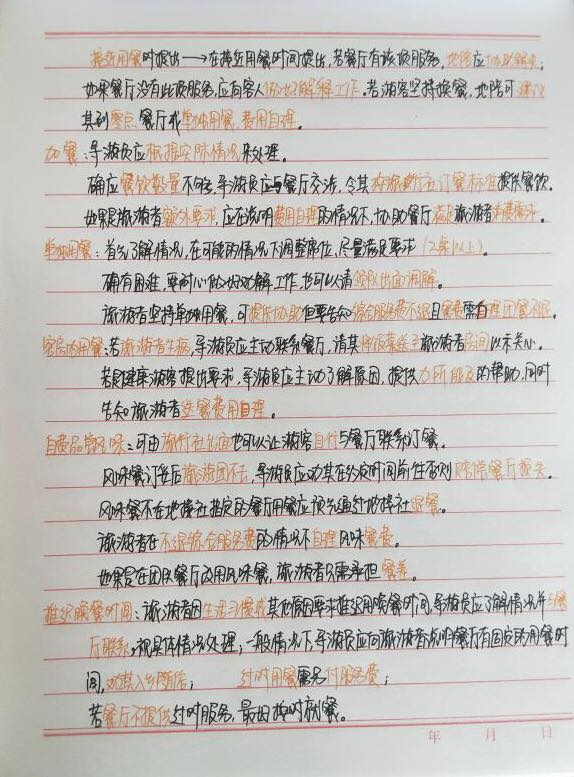 接近用餐时提出→在接近用餐时间提出,若餐厅有该项服务,地陪应协助解决,
如果餐厅没有此项服务,应向客人做好解释工作。若游客坚持换餐,地陪可建议
其到零点餐厅或单独用餐,费用自理。
加餐:导游员应根据实际情况来处理。
确应餐饮数量不够,导游员应与餐厅交涉,令其按旅行社订餐标准提供餐饮。
如果是旅游者额外要求,应在说明费用自理的情况下,协助餐厅满足旅游者消费需求。
单独用餐:首先了解情况,在可能的情况下调整席位,尽量满足要求(2桌以上)。
确有困难,要耐心做好劝解工作,也可以请领队出面调解。
旅游者坚持单独用餐,可提供协助但要告知综合服务费不退且餐费需自理团餐不退。
客房内用餐:若旅游者生病,导游员应主动联系餐厅,请其将饭菜送至旅游者房间以示关心。
若是健康游客提出要求,导游员应主动了解原因,提供力所能及的帮助,同时
告知旅游者送餐费用自理。
自费品尝风味:可由旅行社出面也可以让游客自行与餐厅联系订餐。
风味餐订妥后旅游团不去,导游员应劝其在约定时间前往否则赔偿餐厅损失。
风味餐不在地接社指定的餐厅用餐应预先通过地接社退餐。
旅游者在不退综合服务费的情况下自理风味餐费。
如果是在团队餐厅改用风味餐,旅游者只需承担餐差。
推迟晚餐时间:旅游者因生活习惯或其他原因要求推迟用晚餐时间,导游员应了解情况并与餐
厅联系,视具体情况处理;一般情况下,导游员应向旅游者说明餐厅有固定的用餐时
间,劝其入乡随俗; 过时用餐需另付服务费;
若餐厅不提供过时服务,最好按时就餐。
年 月 日